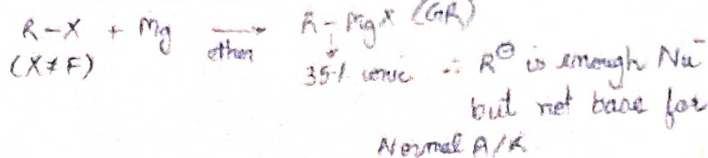 R-X + Mg ⟶ R-MgX (GR)
(X≠F) ether 35% ionic ∴ R⊖ is enough Nu⁻
but not base for
Normal A/K